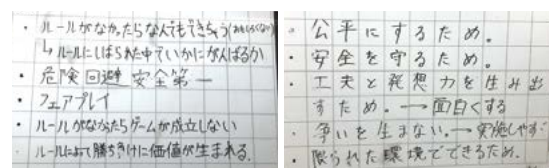 ・ルールがなかったらなんでもできちゃう(おもしろくない)
↳ルールにしばられた中でいかにがんばるか
・危険回避 安全第一
・フェアプレイ
・ルールがなかったらゲームが成立しない
・ルールによって勝ち負けに価値が生まれる。
・公平にするため。
・安全を守るため。
・工夫と発想力を生み出
すため。→面白くする
・争いを生まない。→実施しやす
・限られた環境でできるため。